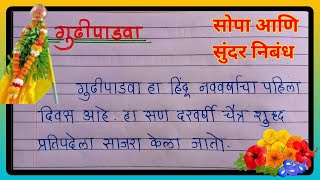 गुढीपाडवा
सोपा आणि
सुंदर निबंध
गुढीपाडवा हा हिंदू नववर्षाचा पहिला
दिवस आहे. हा सण दरवर्षी चैत्र शुद्ध
प्रतिपदेला साजरा केला जातो.